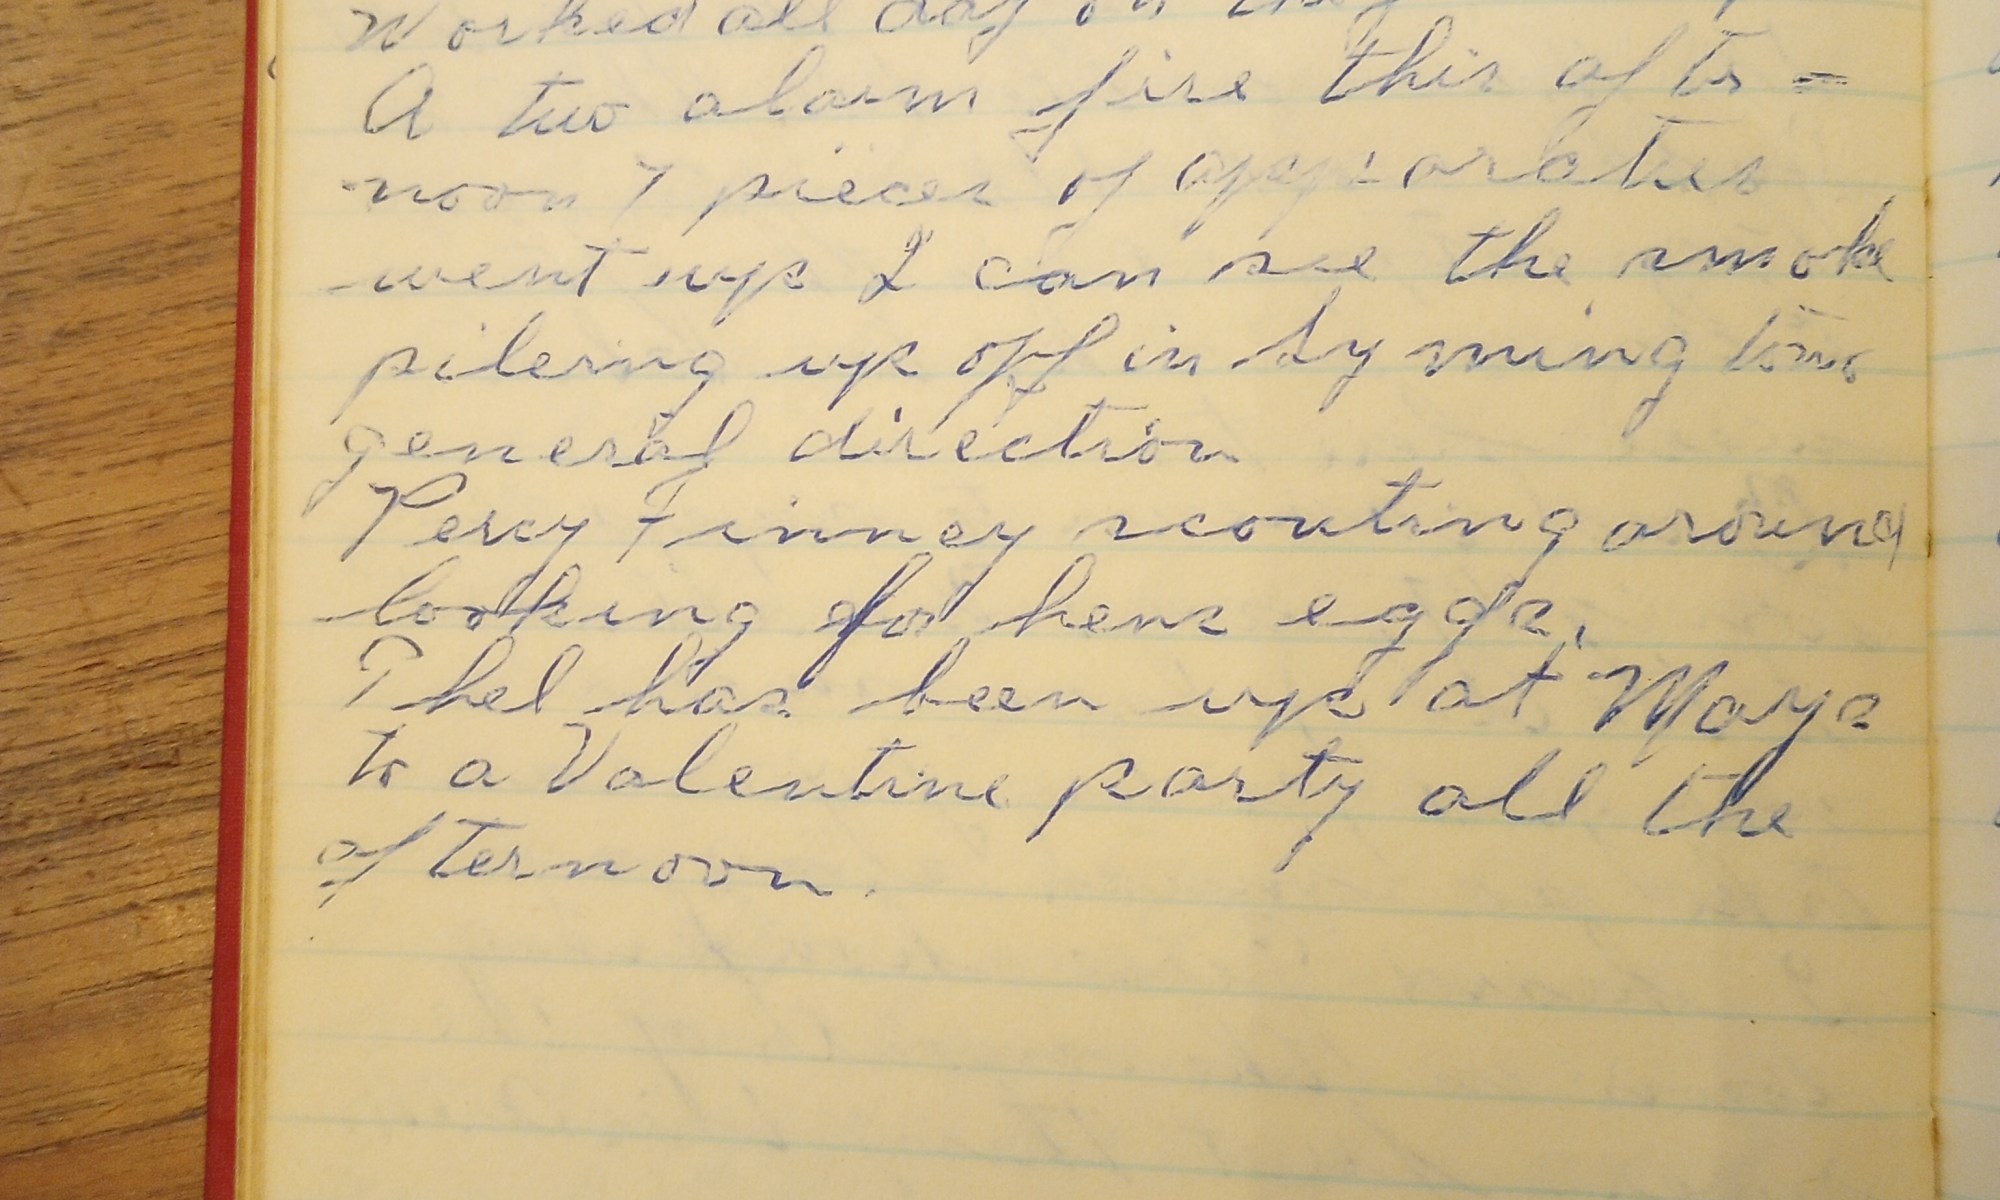 Worked all day on my
A two alarm fire this after =
noon 7 pieces of apparatus
went up I can see the smoke
pilering up off in
general direction
Percy Finney scouting around
looking for hens eggs.
Thel has been up at Mays
to a Valentine party all the
afternoon.